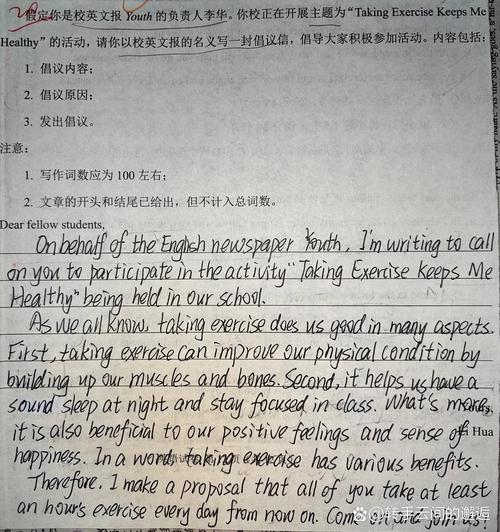 假定你是校英文报 Youth 的负责人李华。你校正在开展主题为“Taking Exercise Keeps Me
Healthy”的活动，请你以校英文报的名义写一封倡议信，倡导大家积极参加活动。内容包括：
1. 倡议内容；
2. 倡议原因；
3. 发出倡议。
注意：
1. 写作词数应为 100 左右；
2. 文章的开头和结尾已给出，但不计入总词数。
Dear fellow students,
On behalf of the English newspaper Youth, I'm writing to call
on you to participate in the activity "Taking Exercise Keeps Me
Healthy" being held in our school.
As we all know, taking exercise does us good in many aspects.
First, taking exercise can improve our physical condition by
building up our muscles and bones. Second, it helps us have a
sound sleep at night and stay focused in class. What's more,
it is also beneficial to our positive feelings and sense of
Hua
happiness. In a word, taking exercise has various benefits.
Therefore, I make a proposal that all of you take at least
an hour's exercise every day from now on. Come and join us.
转手云间的邂逅